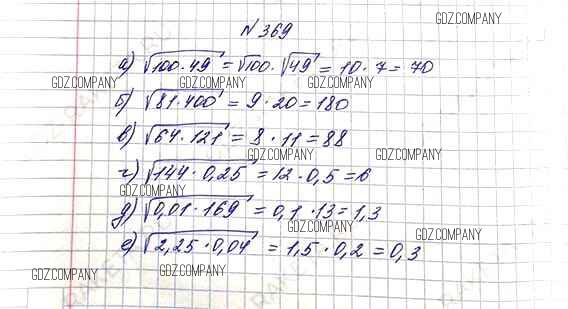 GDZ.COMPANY
№ 369
а) √100·49 = √100 · √49 = 10 · 7 = 70
GDZ.COMPANY GDZ.COMPANY GDZ.COMPANY
б) √81·400 = 9 · 20 = 180
в) √64·121 = 8 · 11 = 88
GDZ.COMPANY GDZ.COMPANY
г) √144·0,25 = 12 · 0,5 = 6
GDZ.COMPANY
д) √0,01·169 = 0,1 · 13 = 1,3
GDZ.COMPANY GDZ.COMPANY
е) √2,25·0,04 = 1,5 · 0,2 = 0,3
GDZ.COMPANY GDZ.COMPANY